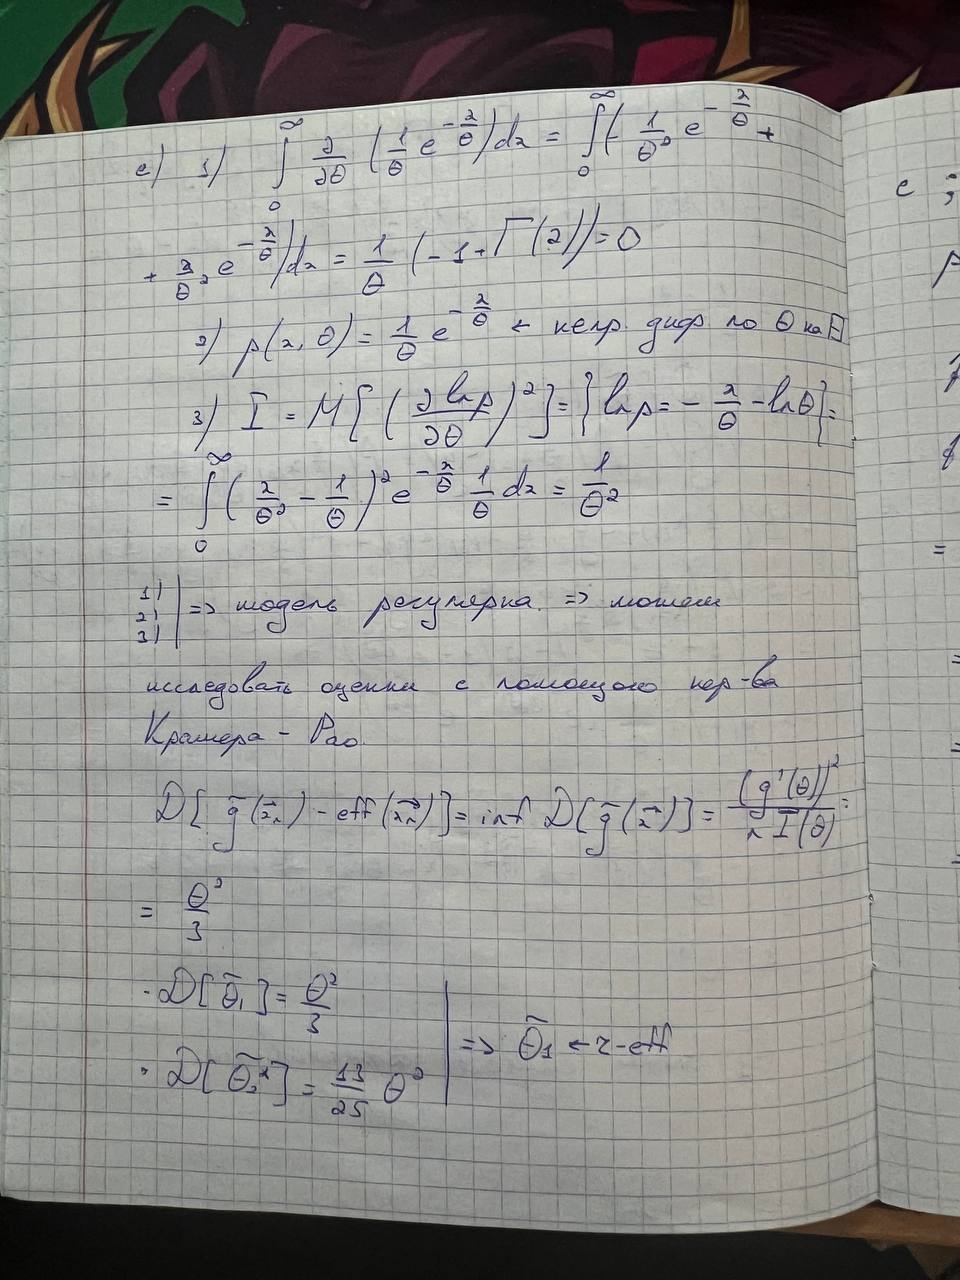 c) 1) ∫₀^∞ ∂/∂θ (1/θ e^(-x/θ)) dx = ∫₀^∞ (- 1/θ² e^(-x/θ) +
+ x/θ² e^(-x/θ)) dx = 1/θ (-1 + Γ(2)) = 0
2) p(x, θ) = 1/θ e^(-x/θ) ← непр. диф по θ на Θ
3) I = M[(∂ ln p/∂θ)²] = {ln p = - x/θ - ln θ} =
= ∫₀^∞ (x/θ² - 1/θ)² e^(-x/θ) 1/θ dx = 1/θ²
1)
2)
3) | => модель регулярна. => можем
исследовать оценки с помощью нер-ва
Крамера - Рао.
D[g̃(x⃗ₙ) - eff(x⃗ₙ)] = inf D[g̃(x⃗)] = (g'(θ))²/(n I(θ)) =
= θ²/3
· D[θ̃₁] = θ²/3
· D[θ̃₂'] = 13/25 θ² | => θ̃₁ ← r-eff
c ;
p
=